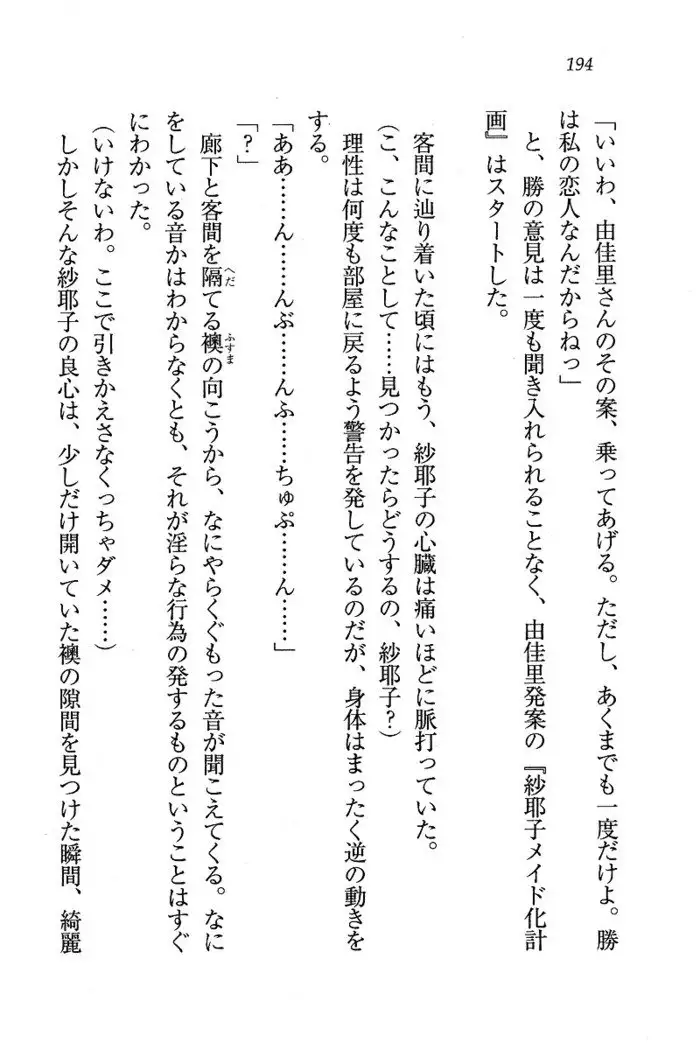 194
「いいわ、由佳里さんのその案、乗ってあげる。ただし、あくまでも一度だけよ。勝
は私の恋人なんだからねっ」
と、勝の意見は一度も聞き入れられることなく、由佳里発案の『紗耶子メイド化計
画』はスタートした。
客間に辿り着いた頃にはもう、紗耶子の心臓は痛いほどに脈打っていた。
(こ、こんなことして……見つかったらどうするの、紗耶子?)
理性は何度も部屋に戻るよう警告を発しているのだが、身体はまったく逆の動きを
する。
「ああ……ん……んぶ……んふ……ちゅぷ……ん……」
「?」
廊下と客間を隔てる襖の向こうから、なにやらくぐもった音が聞こえてくる。なに
へだ
ふすま
をしている音かはわからなくとも、それが淫らな行為の発するものということはすぐ
にわかった。
(いけないわ。ここで引きかえさなくっちゃダメ……)
しかしそんな紗耶子の良心は、少しだけ開いていた襖の隙間を見つけた瞬間、綺麗